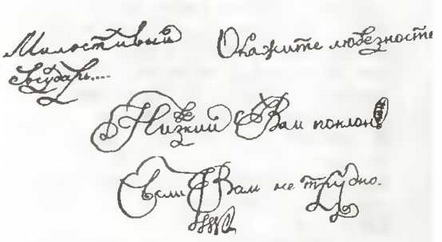 Милостивый
государь....
Окажите любезность
Низкий Вам поклон!
Если Вам не трудно.